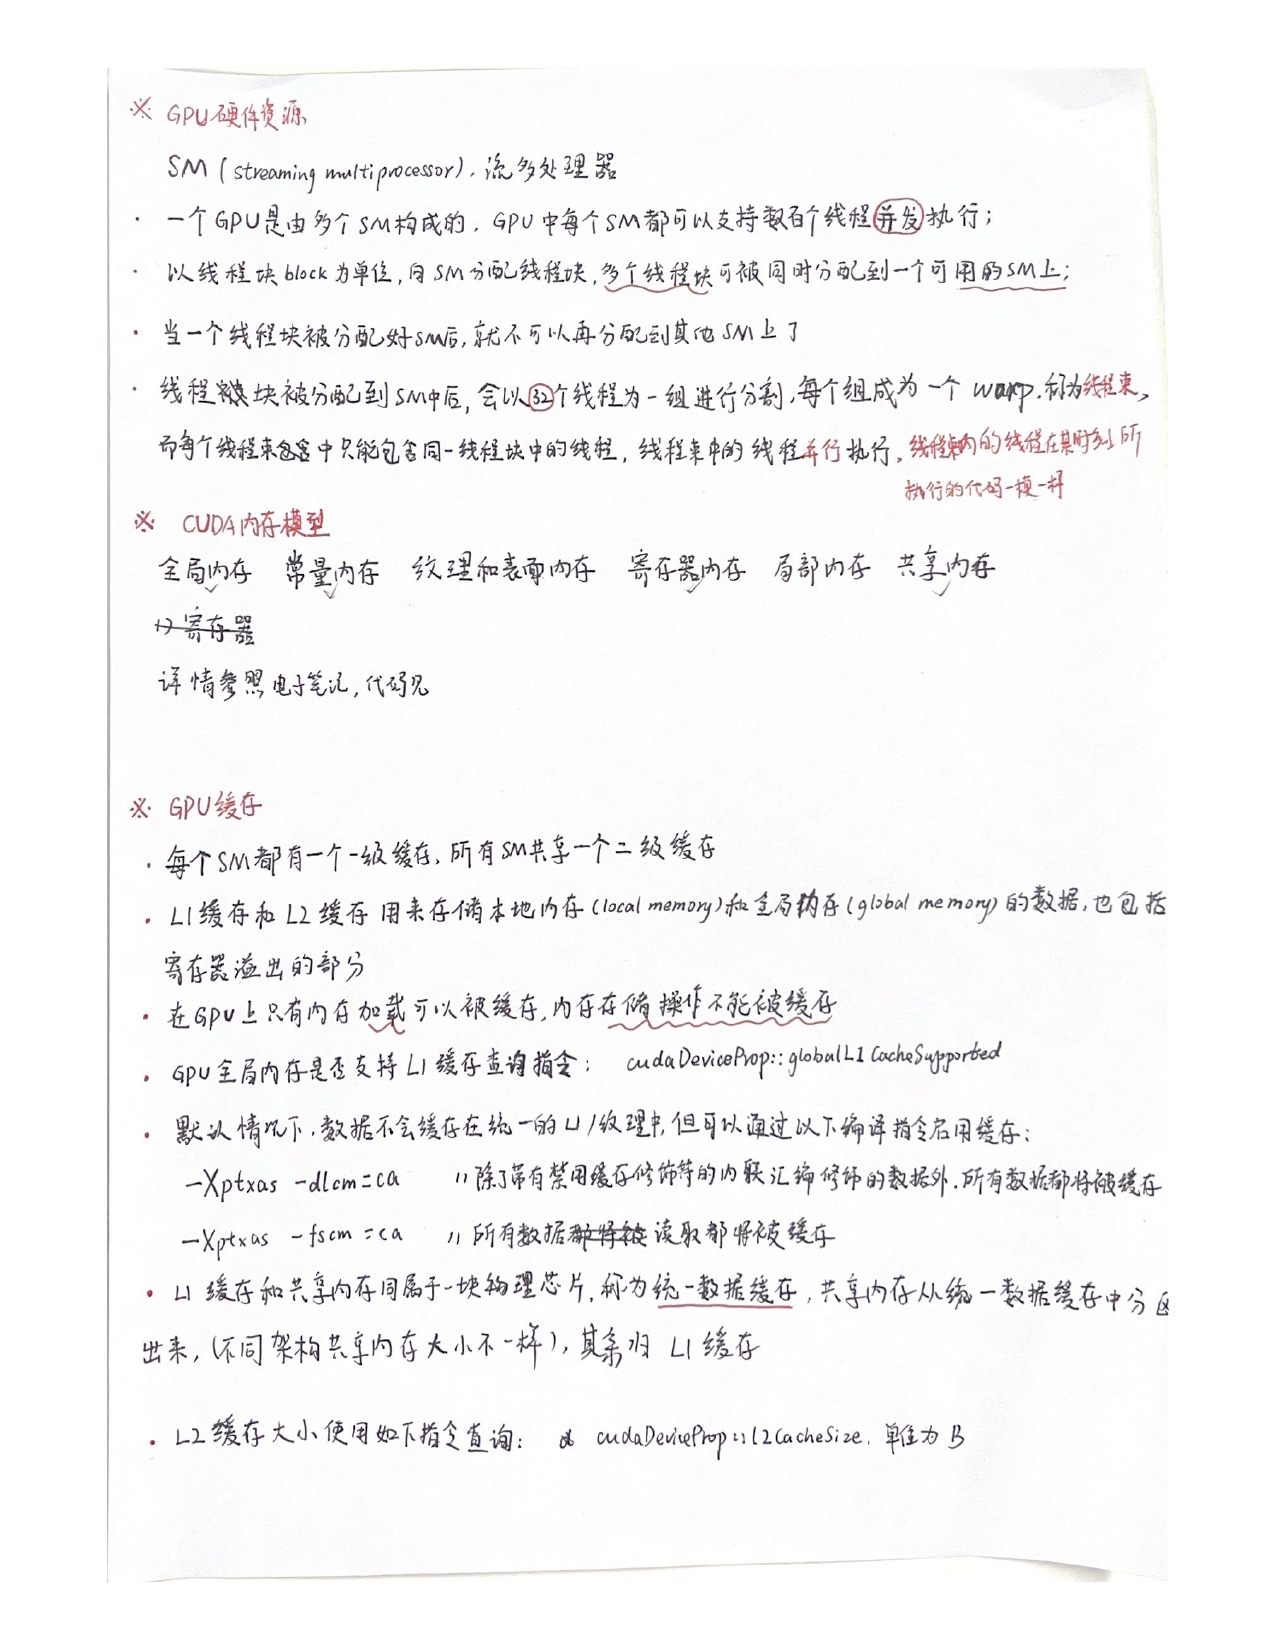 ※ GPU硬件资源
SM (streaming multiprocessor). 流多处理器
· 一个GPU是由多个SM构成的, GPU中每个SM都可以支持数百个线程并发执行;
· 以线程块block为单位, 向SM分配线程块, 多个线程块可被同时分配到一个可用的SM上;
· 当一个线程块被分配好SM后, 就不可以再分配到其他SM上了
· 线程块被分配到SM中后, 会以32个线程为一组进行分割, 每个组成为一个 warp, 称为线程束,
而每个线程束中只能包含同一线程块中的线程, 线程束中的线程并行执行, 线程束内的线程在某时刻所
执行的代码一模一样
※ CUDA内存模型
全局内存 常量内存 纹理和表面内存 寄存器内存 局部内存 共享内存
1) 寄存器
详情参照电子笔记, 代码见
※ GPU缓存
· 每个SM都有一个一级缓存, 所有SM共享一个二级缓存
· L1缓存和L2缓存用来存储本地内存(local memory)和全局内存(global memory)的数据, 也包括
寄存器溢出的部分
· 在GPU上只有内存加载可以被缓存, 内存存储操作不能被缓存
· GPU全局内存是否支持L1缓存查询指令: cudaDeviceProp::globalL1CacheSupported
· 默认情况下, 数据不会缓存在统一的L1/纹理中, 但可以通过以下编译指令启用缓存:
-Xptxas -dlcm=ca // 除了带有禁用缓存修饰符的内联汇编修饰的数据外, 所有数据都将被缓存
-Xptxas -fscm=ca // 所有数据都将被读取都将被缓存
· L1缓存和共享内存同属于一块物理芯片, 称为统一数据缓存, 共享内存从统一数据缓存中分区
出来, (不同架构共享内存大小不一样), 其余归 L1缓存
· L2缓存大小使用如下指令查询: cudaDeviceProp::l2CacheSize. 单位为B